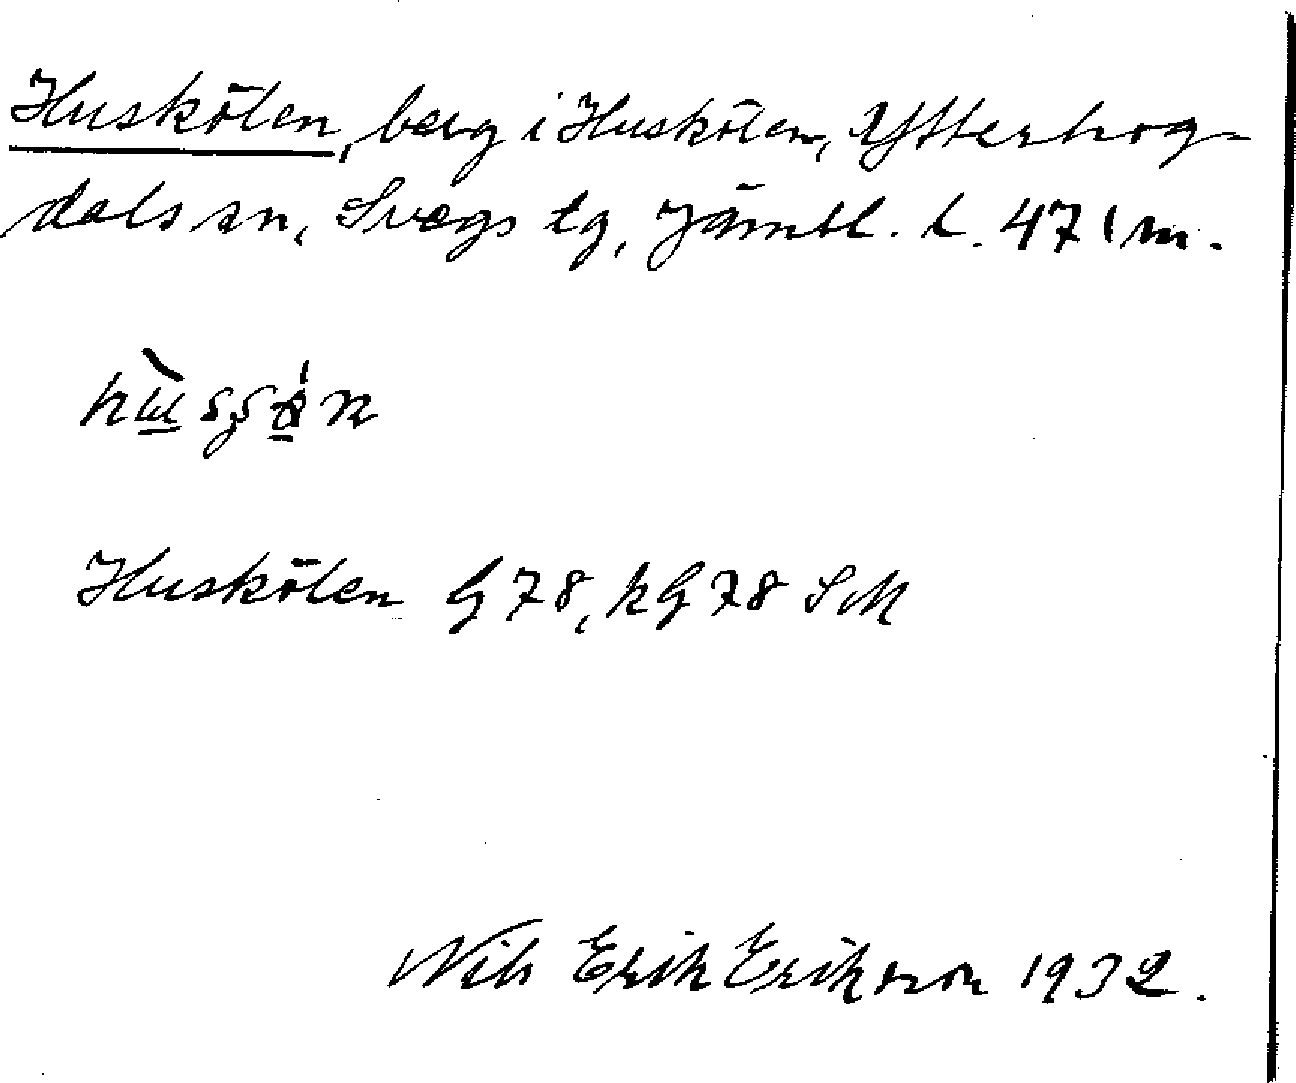 Huskölen, berg i Huskölen, Ytterhog-
dals sn, Svegs tg, Jämtl. l. 471 m.
Huskölen G 78, kG 78 SM
Nils Erik Erikson 1932.